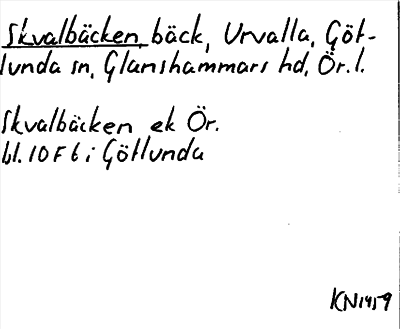 Skvalbäcken, bäck, Urvalla, Göt-
lunda sn, Glanshammars hd, Ör. l.
Skvalbäcken ek Ör.
bl. 10 F 6 i Götlunda
KN 1959